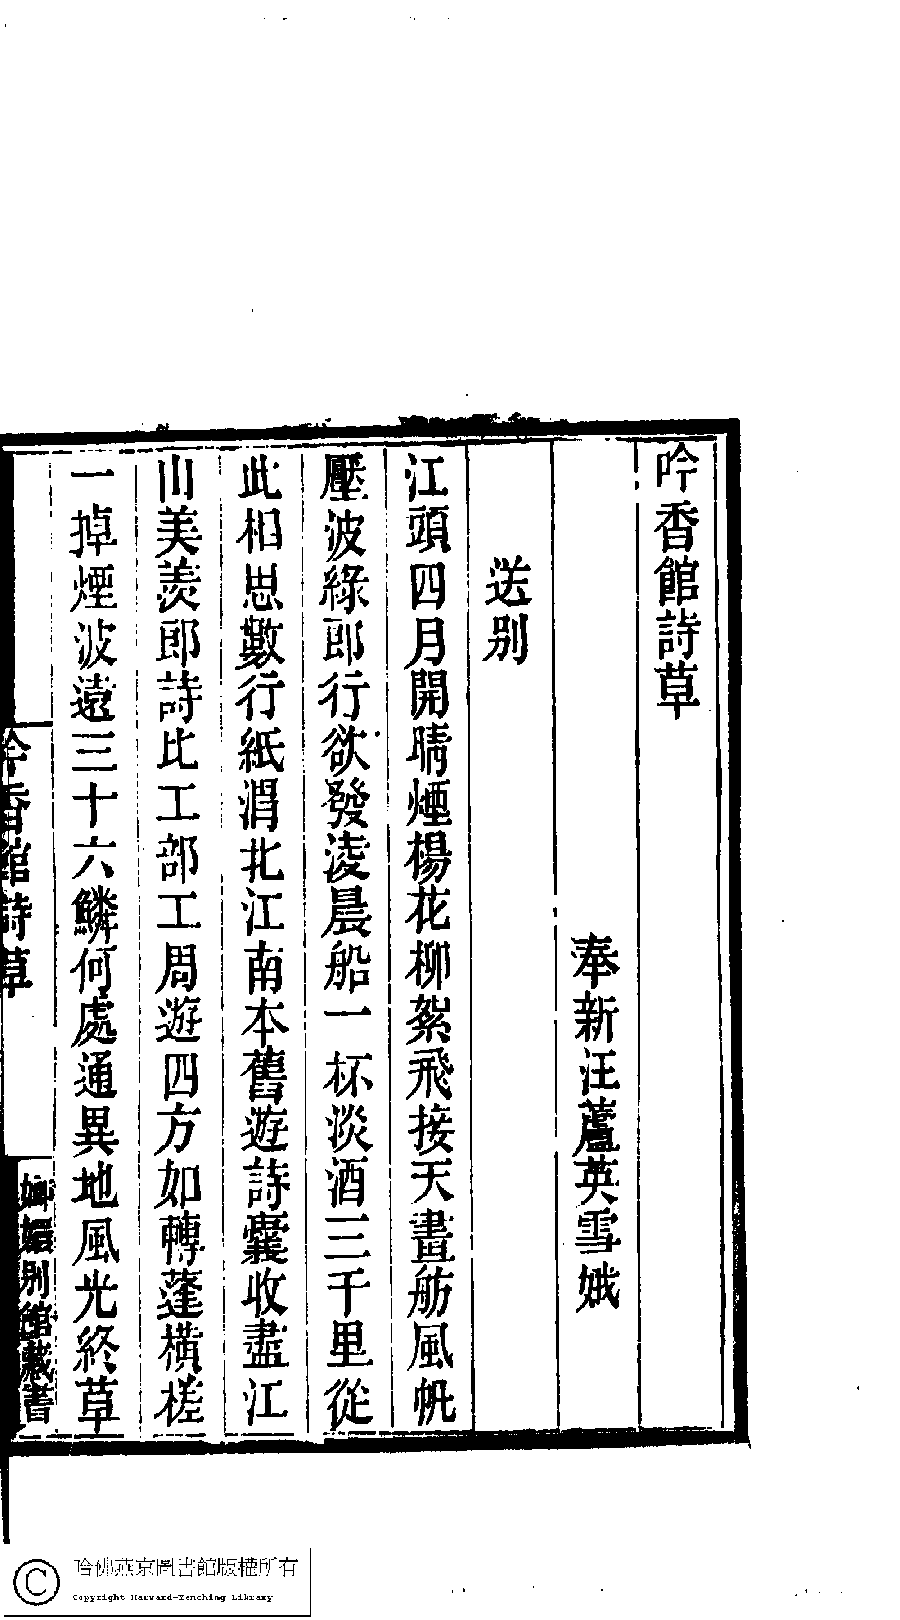 吟香館詩草
奉新汪蘆英雪娥
送别
江頭四月開晴煙楊花柳絮飛接天畫舫風帆
壓波綠郎行欲發淩晨船一杯淡酒三千里從
此相思數行紙渭北江南本舊遊詩囊收盡江
山美羨郎詩比工部工周遊四方如轉蓬橫槎
一掉煙波遠三十六鱗何處通異地風光終草
吟香館詩草
嫏嬛别館藏書
哈佛燕京圖書館版權所有
Copyright Harvard-Yenching Library